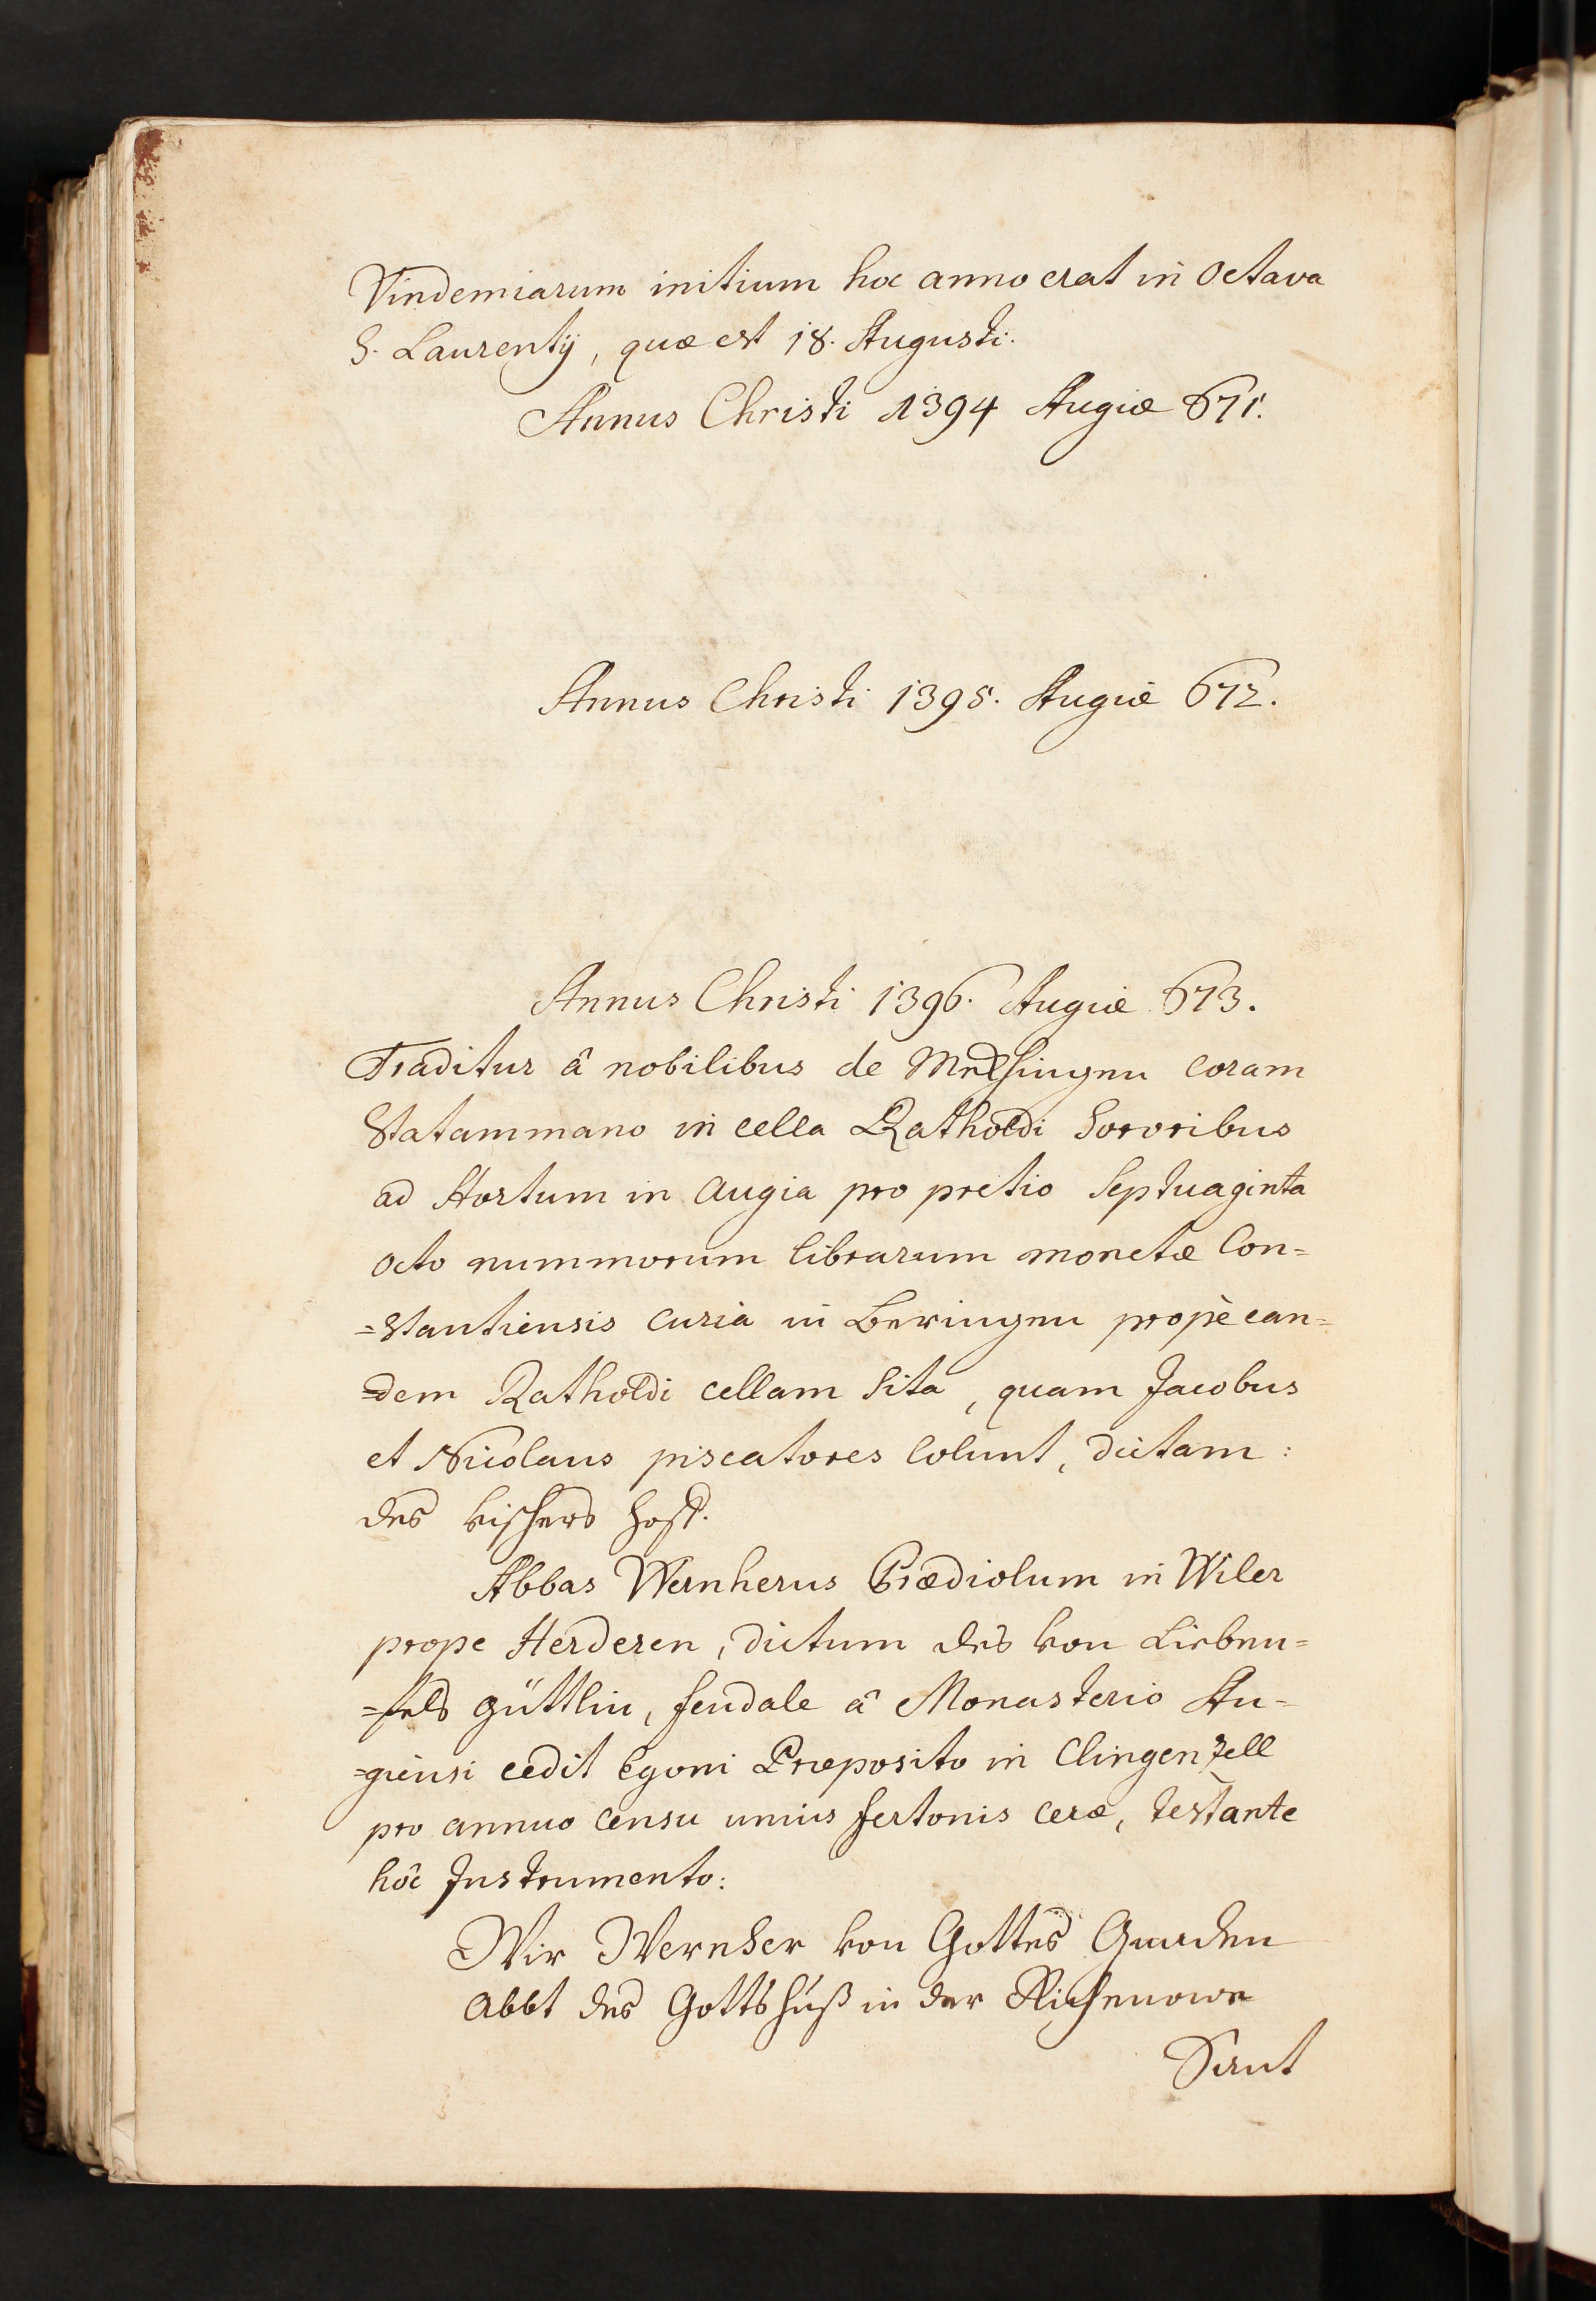 Vindemiarum initium hoc anno erat in Octava
S. Laurentij, quæ est 18. Augusti.
Annus Christi 1394 Augiæ 671.
Annus Christi 1395. Augiæ 672.
Annus Christi 1396. Augiæ 673.
Traditur â nobilibus de coram
Statammano in cella Ratholdi Sororibus
ad Hortum in Augia pro pretio Septuaginta
octo nummorum librarum monetæ Con=
=stantiensis curia in Beringen propè ean=
=dem Ratholdi cellam sita, quam Jacobus
et Nicolaus piscatores colunt, dictam:
des vischers hoff.
Abbas Wernherus Prædiolum in Wiler
prope Herderen, dictum des von Lieben=
=fels güttlin, feudale â Monasterio Au=
=giensi cedit Egoni Præposito in Clingenzell
pro annuo censu unius fertonis ceræ, testante
hôc Instrumento:
Wir Wernher von Gottes Gnaden
Abbt des Gottshuß in der Richenowe
Sant